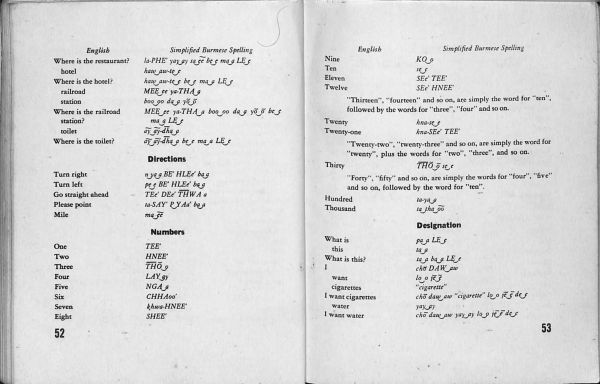 English Simplified Burmese Spelling
Where is the restaurant? la-PHE' yay ay sa ee be s ma a LE s
hotel haw aw-te s
Where is the hotel? haw aw-te s be s ma a LE s
railroad MEE ee ya-THA a
station boo oo da a
Where is the railroad MEE ee ya-THA a boo oo da a be s
station? ma a LE s
toilet
Where is the toilet? be s ma a LE s
Directions
Turn right BE' HLEe' ba a
Turn left BE' HLEe' ba a
Go straight ahead TEe' DEe' THWA a
Please point ta-SAY' ba a
Mile
Numbers
One TEE'
Two HNEE'
Three THO o
Four LAY ay
Five NGA a
Six CHHAoo'
Seven khwa-HNEE'
Eight SHEE'
52
English Simplified Burmese Spelling
Nine KO o
Ten se s
Eleven SEe' TEE'
Twelve SEe' HNEE'
"Thirteen", "fourteen" and so on, are simply the word for "ten",
followed by the words for "three", "four" and so on.
Twenty hna-se s
Twenty-one kna-SEe' TEE'
"Twenty-two", "twenty-three" and so on, are simply the word for
"twenty", plus the words for "two", "three", and so on.
Thirty se s
"Forty", "fifty" and so on, are simply the words for "four", "five"
and so on, followed by the word for "ten".
Hundred ta-ya a
Thousand
Designation
What is pa a LE s
this ta a
What is this? ta a ba a LE s
I DAW aw
want lo o
cigarettes "cigarette"
I want cigarettes daw aw "cigarette" lo o de s
water yay ay
I want water daw aw yay ay lo o de s
53